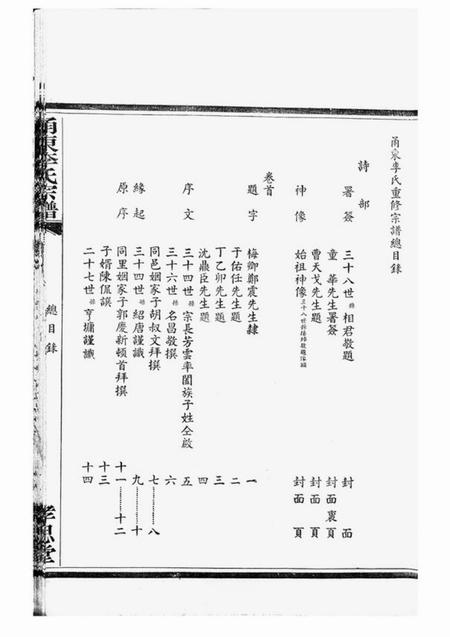 甬東李氏重修宗譜總目錄
詩部
署簽 三十八世孫相君敬題 封面
童華先生署簽 封面裏頁
曹天戈先生題 封面頁
神像 始祖神像 封面頁
卷首
題字 梅卿鄭震先生隸 一
于佑任先生題 二
丁乙卯先生題 三
沈鼎臣先生題 四
序文 三十四世孫宗長芳雲率闔族子姓仝啟 五
三十六世孫名昌敬撰 六
同邑姻家子胡叔文拜撰 七……八
緣起 三十四世孫紹唐謹識 九……十
原序 同里姻家子郭慶新頓首拜撰 十一……十二
子婿陳侃謨 十三
二十七世孫亨墉謹識 十四
甬東李氏宗譜
總目錄
孝思堂